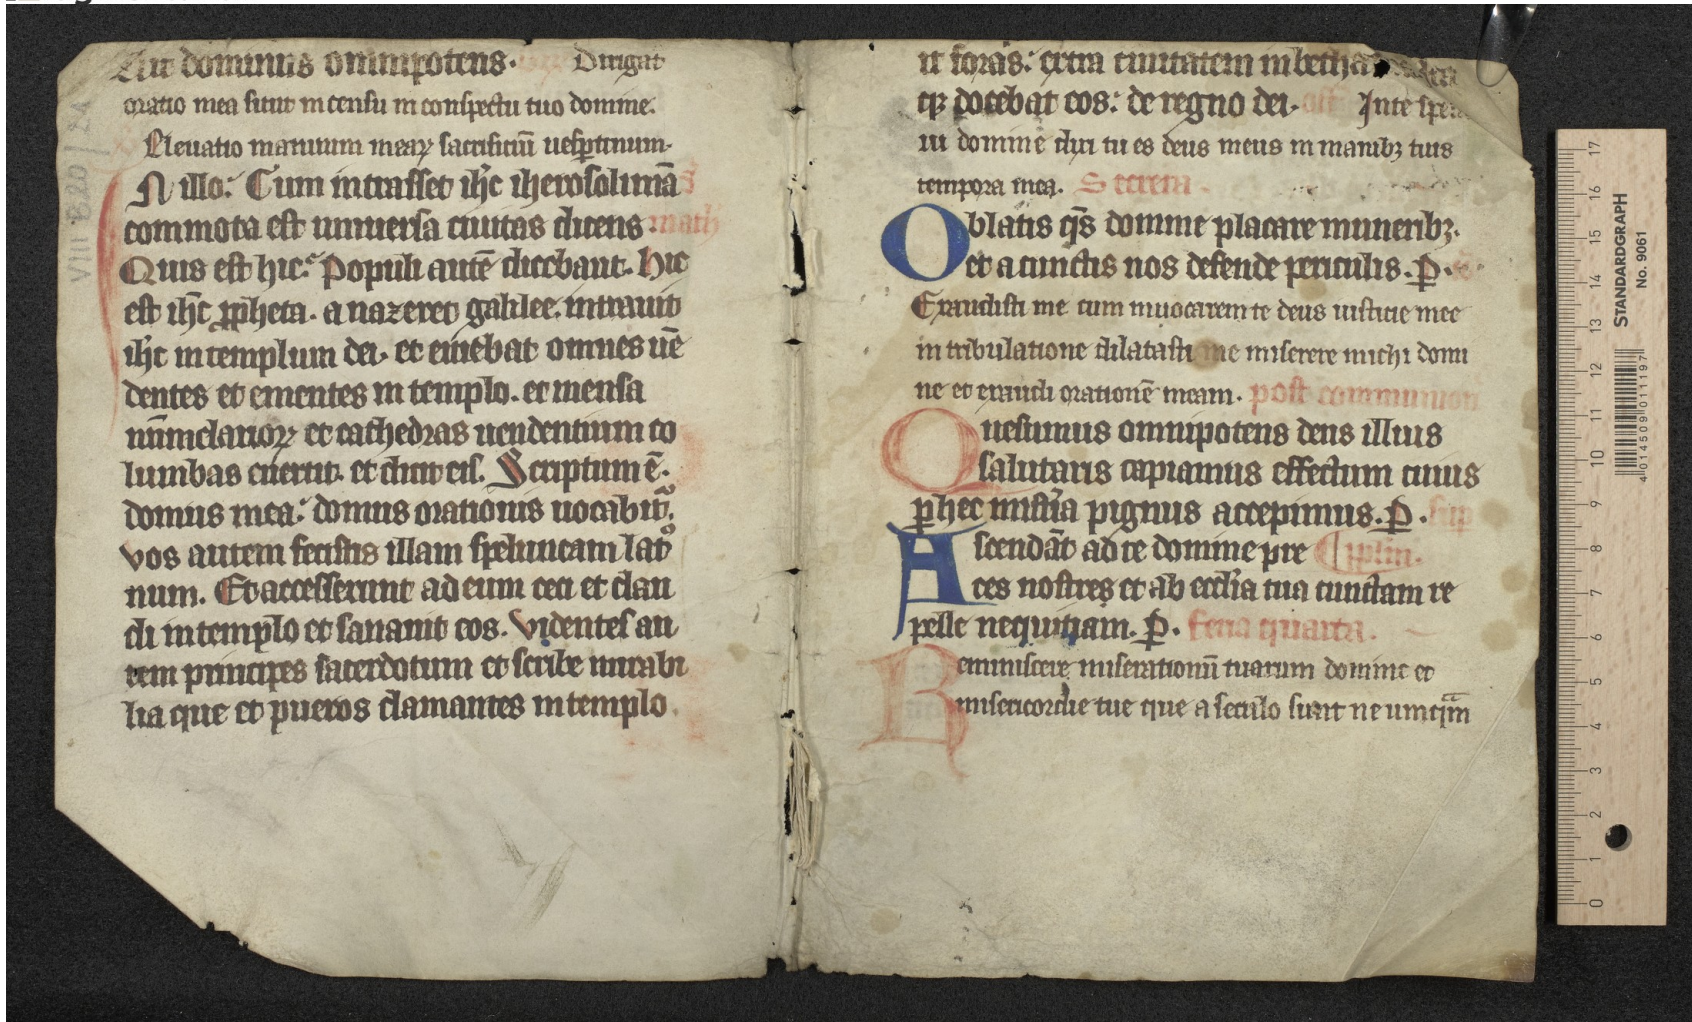 dominus omnipotens. Dirigat
oratio mea sicut incensu in conspectu tuo domine.
Eleuatio manuum mearꝝ sacrificiū uesꝑtinum.
IN illo. Cum intrasset ih̄c iherosolimā
commota est uniuersa ciuitas dicens. math
Quis est hic. Populi autē dicebant. Hic
est ih̄c ꝓpheta. a nazeret galilee. intrauit
ih̄c in templum dei. et eiciebat omnes uē
dentes et ementes in templo. et mensa
nūmulariorꝝ et cathedras uendentium co
lumbas euertit. et dixit eis. Scriptum ē.
domus mea. domus orationis uocabit᷑.
vos autem fecistis illam speluncam latͦ
num. Et accesserunt ad eum ceci et clau
di in templo et sanauit eos. Videntes au
tem principes sacerdotum et scribe mirabi
lia que et pueros clamantes in templo
it foras. extra ciuitatem in betha
qꝫ docebat eos. de regno dei. off In te spe
ui domine dixi tu es deus meus in manibꝫ tuis
tempora mea. Secrem
Oblatis qs̄ domine placare muneribꝫ.
et a cunctis nos defende periculis. ꝑ.
Exaudisti me cum inuocarem te deus iusticie mee
in tribulatione dilatasti me miserere michi domi
ne et exaudi orationē meam. post communion
Quesumus omnipotens deus illius
salutaris capiamus effectum cuius
ꝑ hec mist̄ia pignus accepimus. ꝑ. sup
Ascendāt ad te domine pre
ces nostres et ab eccl̄ia tua cunctam re
pelle nequitiam. ꝑ. feria quarta.
Reminiscere miserationū tuarum domine et
misericordie tue que a seculo sunt ne umqᷓm
VIII B20
STANDARDGRAPH
No. 9061
4 014509 011197
0 1 2 3 4 5 6 7 8 9 10 11 12 13 14 15 16 17